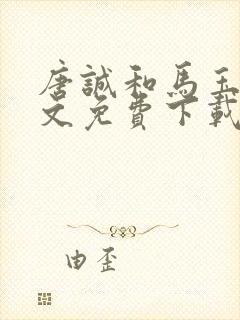 唐誠和馬玉
文免費下載
由歪